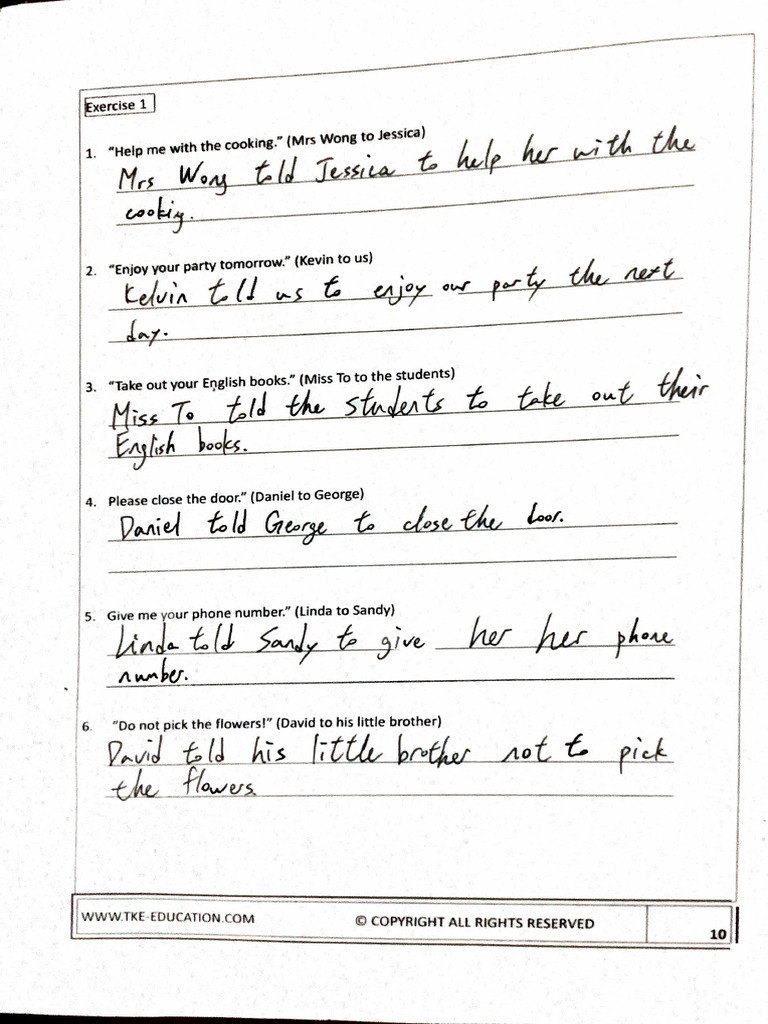 Exercise 1
1. "Help me with the cooking." (Mrs Wong to Jessica)
Mrs Wong told Jessica to help her with the
cooking.
2. "Enjoy your party tomorrow." (Kevin to us)
Kelvin told us to enjoy our party the next
day.
3. "Take out your English books." (Miss To to the students)
Miss To told the students to take out their
English books.
4. Please close the door." (Daniel to George)
Daniel told George to close the door.
5. Give me your phone number." (Linda to Sandy)
Linda told Sandy to give her her phone
number.
6. "Do not pick the flowers!" (David to his little brother)
David told his little brother not to pick
the flowers.
WWW.TKE-EDUCATION.COM © COPYRIGHT ALL RIGHTS RESERVED 10